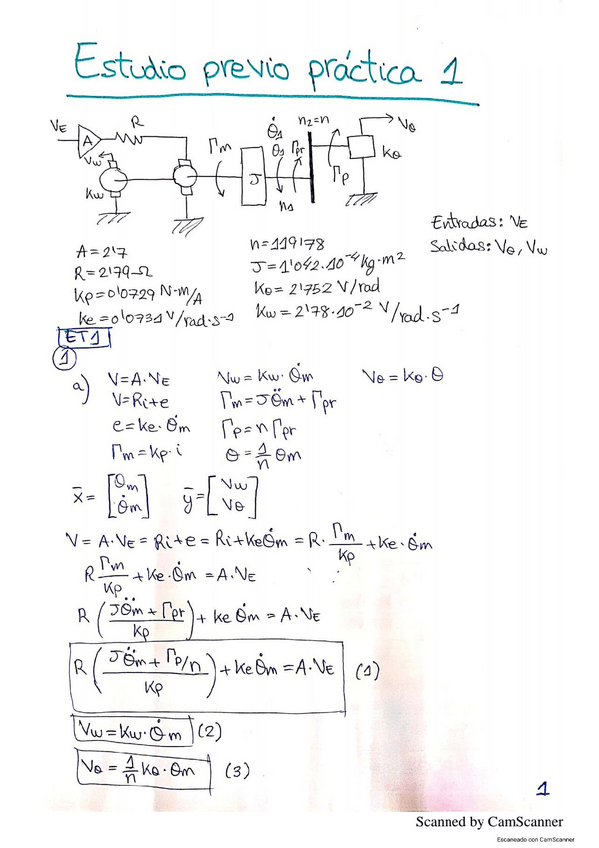 Estudio previo práctica 1
VE A R Γm θ̇1 θ1 Γpr n2=n Vθ
Vw Kw J n1 Γp Kθ
Entradas: VE
Salidas: Vθ, Vw
A = 2'7
R = 2'79 Ω
Kp = 0'0729 N·m/A
Ke = 0'0731 V/rad·s-1
n = 119'78
J = 1'042·10-4 kg·m2
Kθ = 2'752 V/rad
Kw = 2'78·10-2 V/rad·s-1
ET1
1
a) V = A·VE Vw = Kw·θ̇m Vθ = Kθ·θ
V = Ri+e Γm = Jθ̈m + Γpr
e = Ke·θ̇m Γp = n Γpr
Γm = Kp·i θ = 1/n θm
x̄ = [θm θ̇m] ȳ = [Vw Vθ]
V = A·VE = Ri+e = Ri+Keθ̇m = R· Γm/Kp + Ke·θ̇m
R Γm/Kp + Ke·θ̇m = A·VE
R (Jθ̈m + Γpr / Kp) + Ke θ̇m = A·VE
R (Jθ̈m + Γp/n / Kp) + Ke θ̇m = A·VE (1)
Vw = Kw·θ̇m (2)
Vθ = 1/n Kθ·θm (3)
1
Scanned by CamScanner
Escaneado con CamScanner